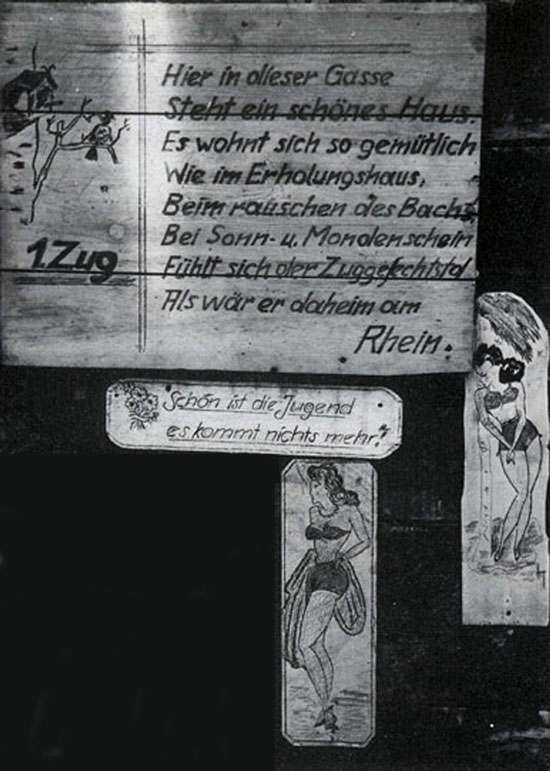 Hier in dieser Gasse
Steht ein schönes Haus.
Es wohnt sich so gemütlich
Wie im Erholungshaus,
Beim rauschen des Bachs
Bei Sonn- u. Mondenschein
Fühlt sich der Zuggefechtstd
Als wär er daheim am
Rhein.
1. Zug
Schön ist die Jugend
es kommt nichts mehr!